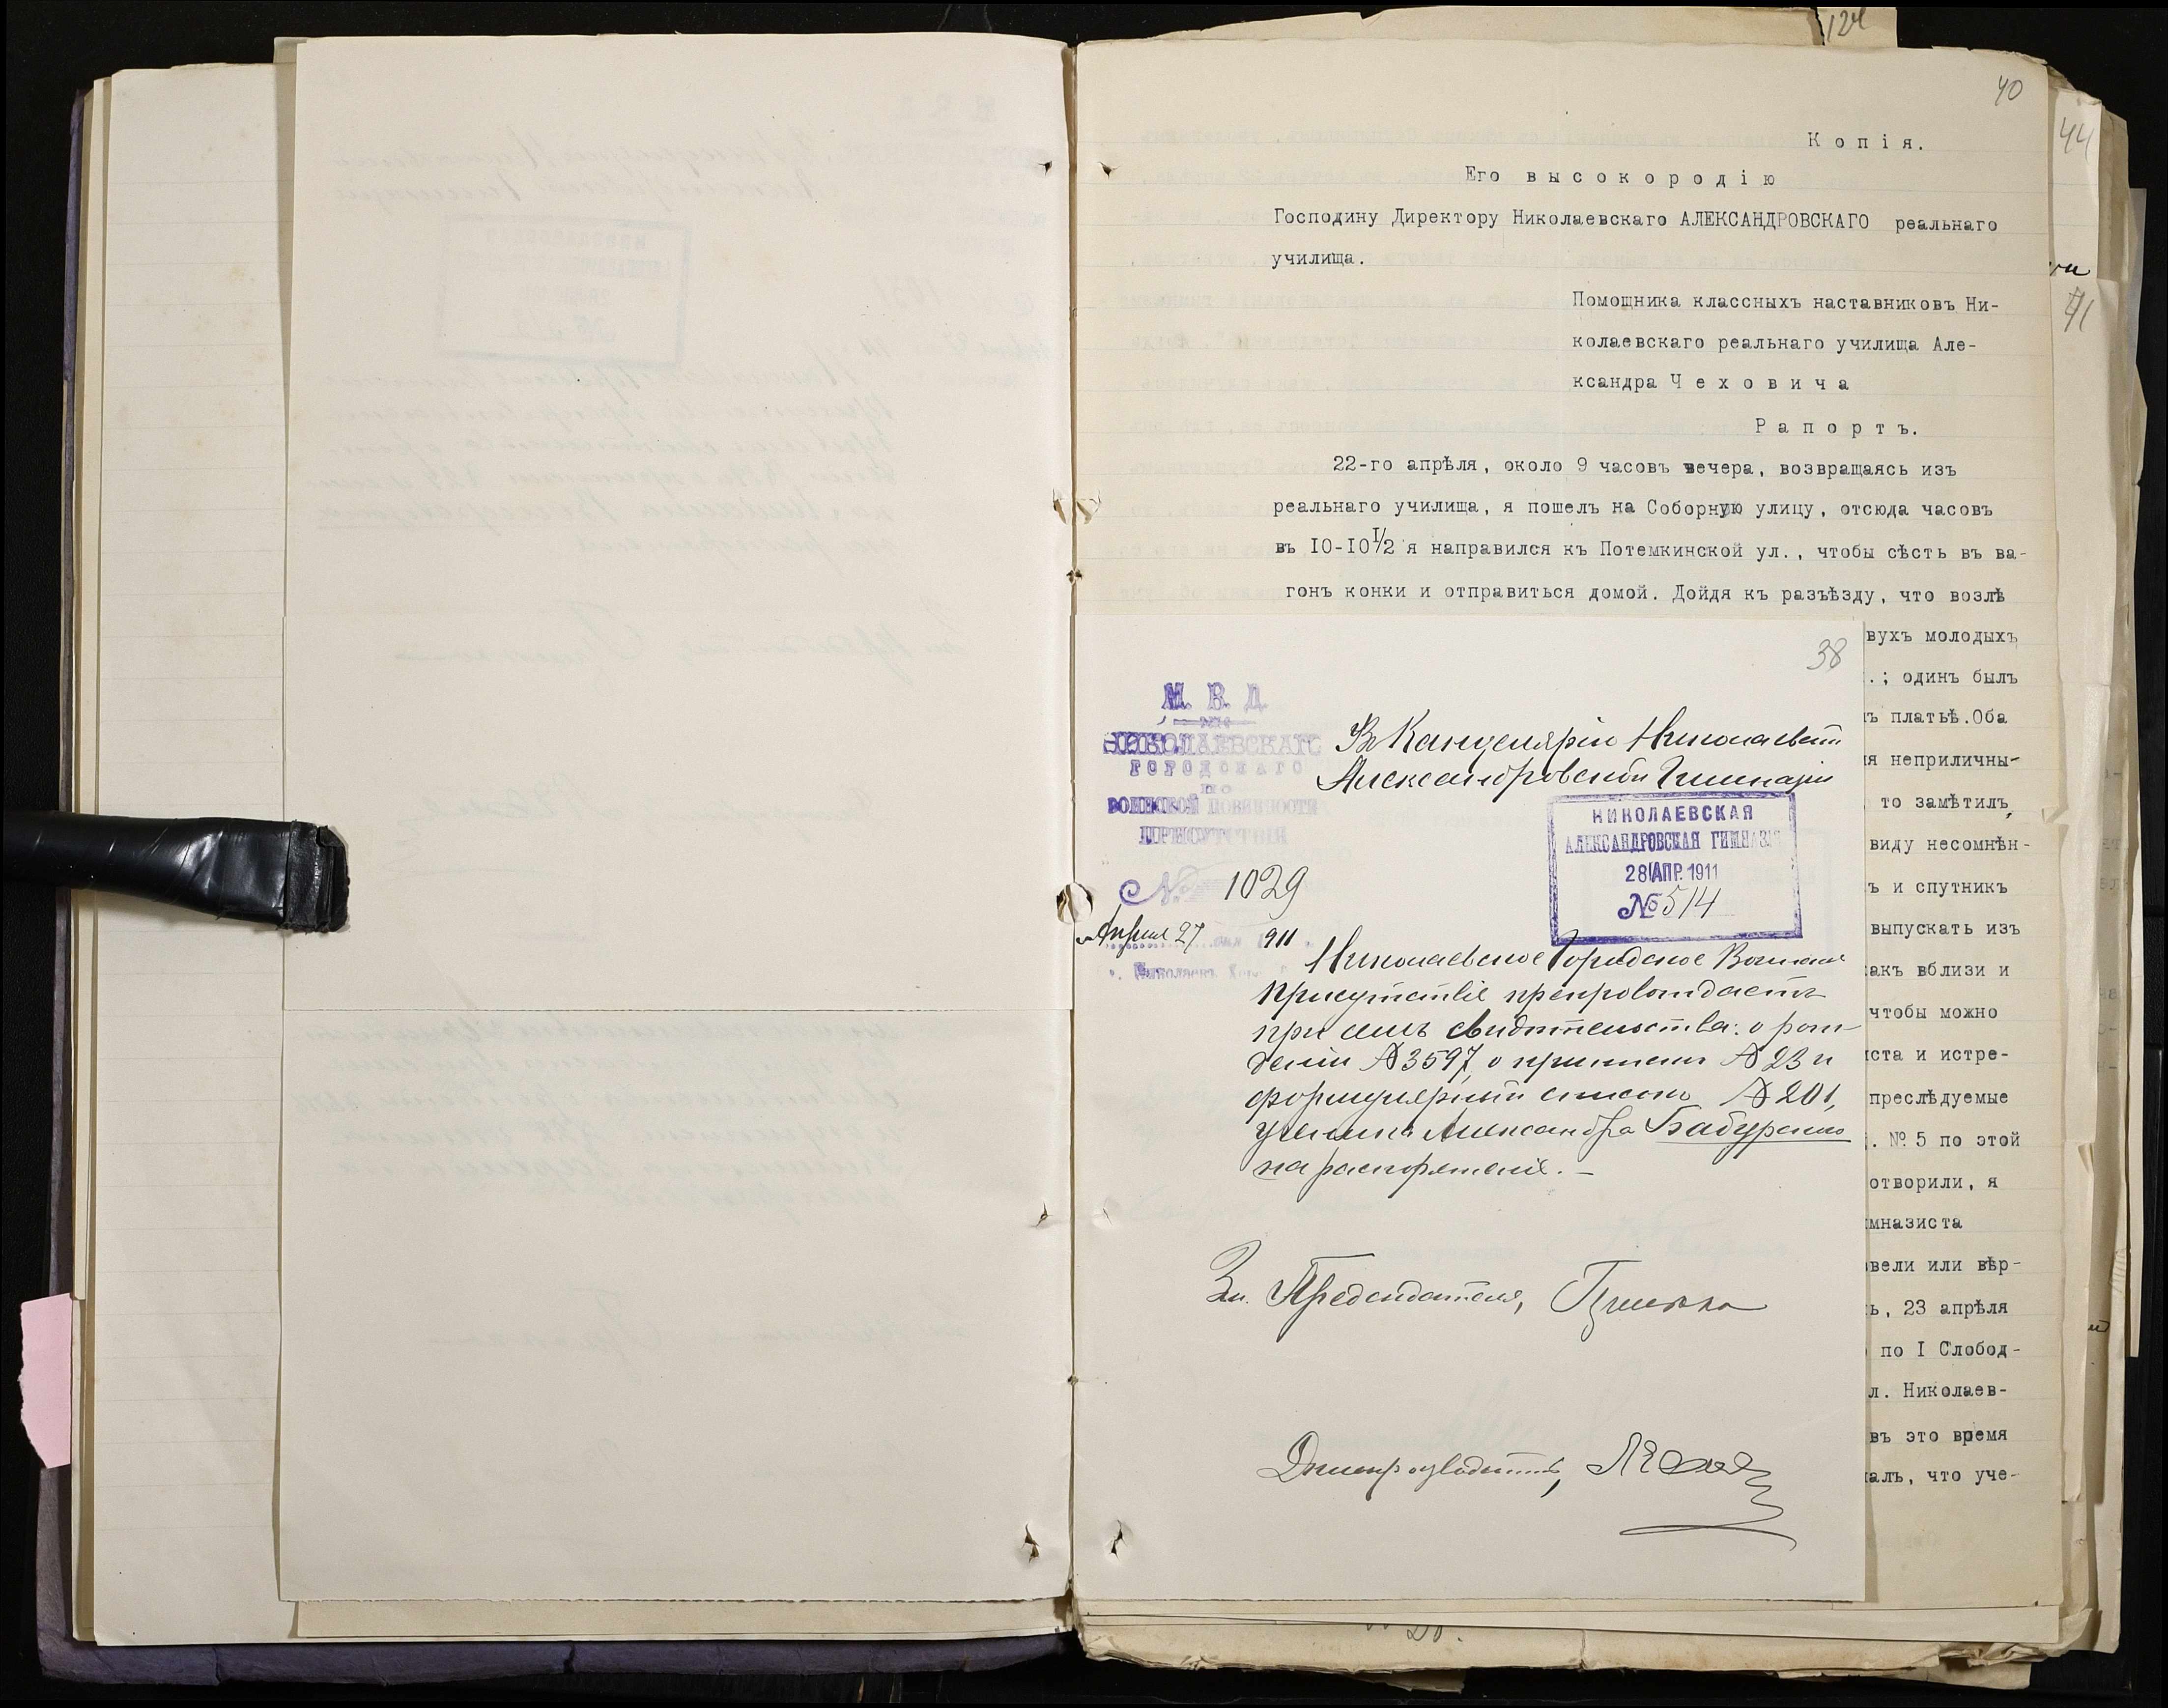 124
40
44
41
Копія.
Его высокородію
Господину Директору Николаевскаго АЛЕКСАНДРОВСКАГО реальнаго
училища.
Помощника классныхъ наставниковъ Ни-
колаевскаго реальнаго училища Але-
ксандра Чеховича
Рапортъ.
22-го апрѣля, около 9 часовъ вечера, возвращаясь изъ
реальнаго училища, я пошелъ на Соборную улицу, отсюда часовъ
въ I0-I0I/2 я направился къ Потемкинской ул., чтобы сѣсть въ ва-
гонъ конки и отправиться домой. Дойдя къ разъѣзду, что возлѣ
вухъ молодыхъ
.; одинъ былъ
ъ платьѣ.Оба
ія неприличны-
то замѣтилъ,
виду несомнѣн-
ъ и спутникъ
выпускать изъ
акъ вблизи и
чтобы можно
иста и истре-
преслѣдуемые
. № 5 по этой
отворили, я
имназиста
вели или вѣр-
ь, 23 апрѣля
по I Слобод-
л. Николаев-
въ это время
алъ, что уче-
38
М. В. Д.
НИКОЛАЕВСКАГО
ГОРОДСКАГО
ПО
ВОИНСКОЙ ПОВИННОСТИ
ПРИСУТСТВІЯ
№ 1029
Апрѣля 27 911
г. Николаевъ
Въ Канцелярію Николаевской
Александровской Гимназіи
НИКОЛАЕВСКАЯ
АЛЕКСАНДРОВСКАЯ ГИМНАЗІЯ
28 АПР. 1911
№ 514
Николаевское Городское Воинское
Присутствіе препровождаетъ
при семъ свидѣтельства: о рож-
деніи № 3597, о припискѣ № 23 и
формулярный списокъ № 201,
ученика Александра Бабуренко
на распоряженіе. —
За Предсѣдателя,
Дѣлопроизводитель,